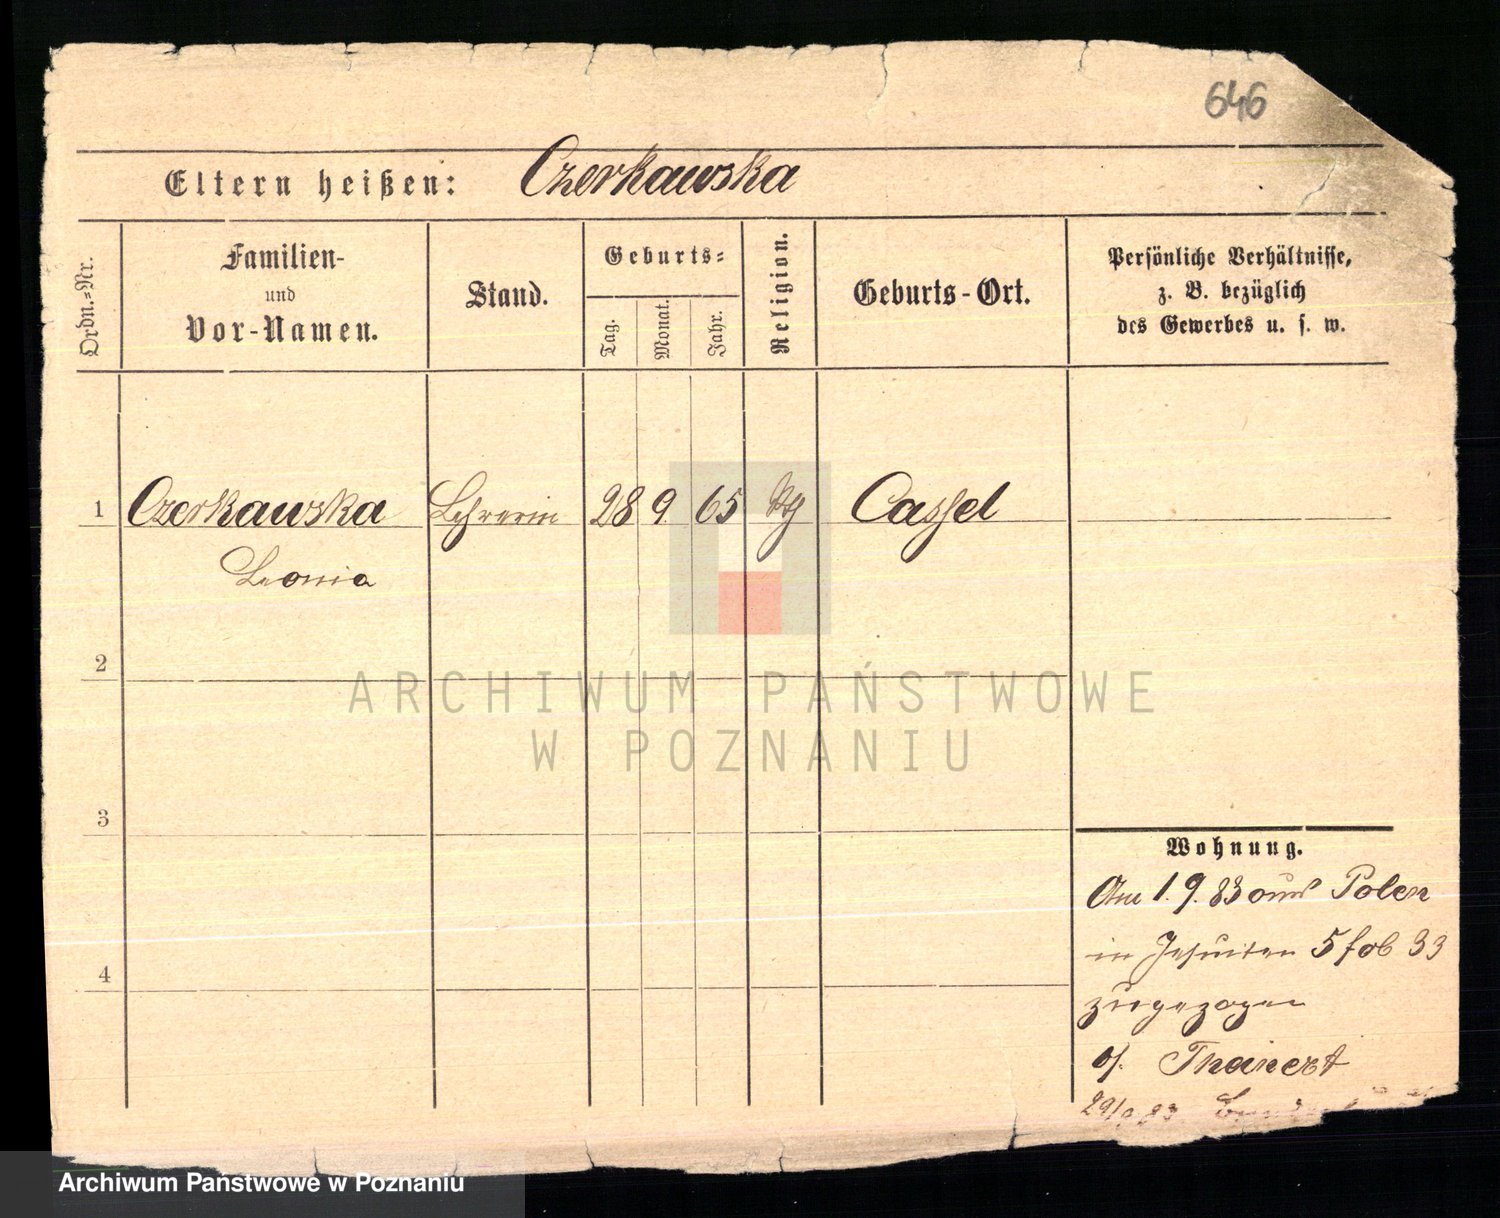 646
Eltern heißen: Czerkawska
Ordn.=Nr.
Familien-
und
Vor-Namen.
Stand.
Geburts=
Tag.
Monat.
Jahr.
Religion.
Geburts-Ort.
Persönliche Verhältnisse,
z. B. bezüglich
des Gewerbes u. s. w.
1 Czerkawska Lehrerin 28 9. 65 Cassel
Leonia
2
3
4
Wohnung.
Am 1. 9. 83 aus Polen
in Jesuiten 5 33
zugezogen
29/9 83.
ARCHIWUM PAŃSTWOWE
W POZNANIU
Archiwum Państwowe w Poznaniu